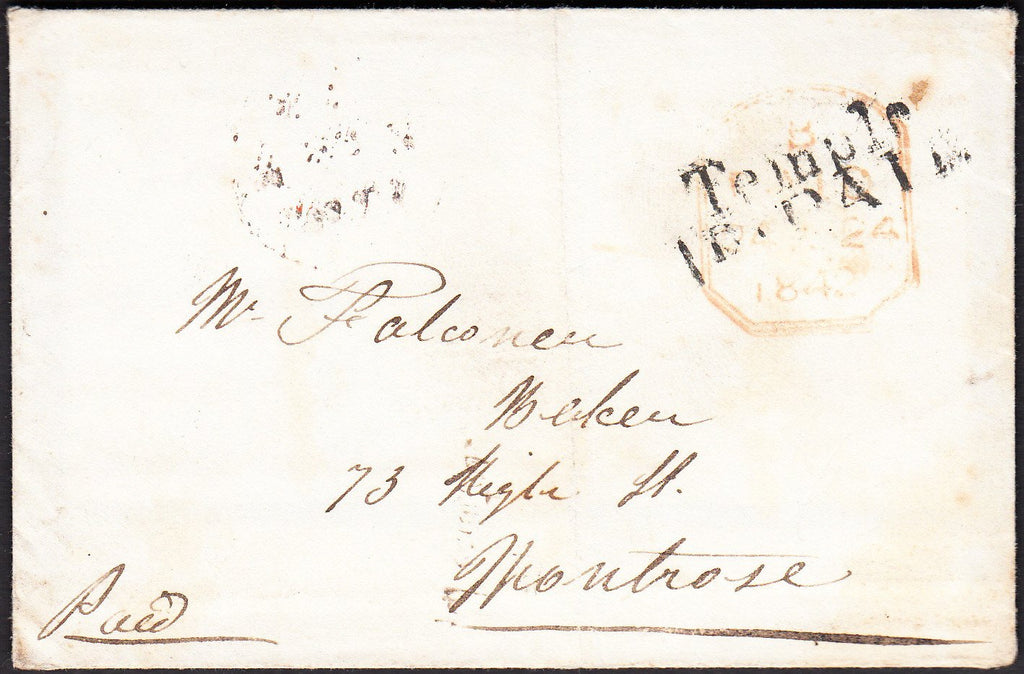 B
Temple
1D. PAID
24
184
Mr Falconer
Baker
73 High St.
Montrose
Paid